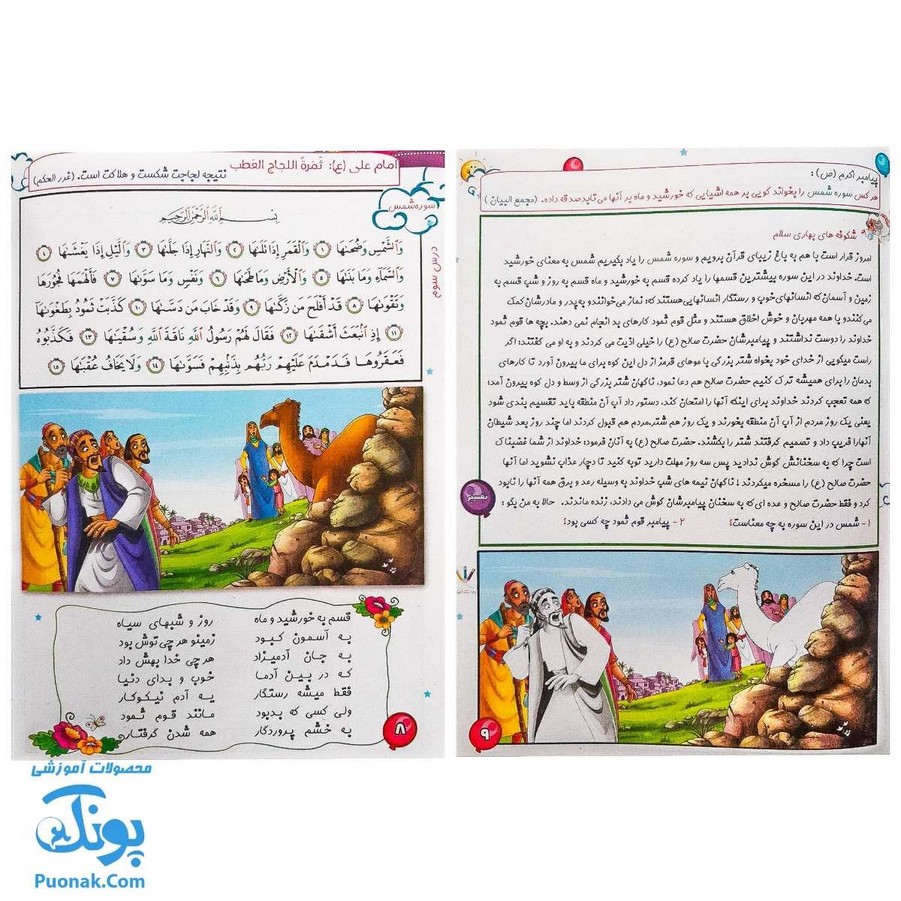 امام علی (ع): ثَمَرةُ اللجاج العَطب
نتیجه لجاجت شکست و هلاکت است. (غرر الحکم)
سوره شمس
درس سوم
بِسْمِ اللَّهِ الرَّحْمَنِ الرَّحِيمِ
وَالشَّمْسِ وَضُحَىٰهَا ۝۱ وَالْقَمَرِ إِذَا تَلَىٰهَا ۝۲ وَالنَّهَارِ إِذَا جَلَّىٰهَا ۝۳ وَاللَّيْلِ إِذَا يَغْشَىٰهَا ۝۴
وَالسَّمَاءِ وَمَا بَنَىٰهَا ۝۵ وَالْأَرْضِ وَمَا طَحَىٰهَا ۝۶ وَنَفْسٍ وَمَا سَوَّىٰهَا ۝۷ فَأَلْهَمَهَا فُجُورَهَا
وَتَقْوَىٰهَا ۝۸ قَدْ أَفْلَحَ مَن زَكَّىٰهَا ۝۹ وَقَدْ خَابَ مَن دَسَّىٰهَا ۝۱۰ كَذَّبَتْ ثَمُودُ بِطَغْوَىٰهَا
۝۱۱ إِذِ انْبَعَثَ أَشْقَىٰهَا ۝۱۲ فَقَالَ لَهُمْ رَسُولُ اللَّهِ نَاقَةَ اللَّهِ وَسُقْيَىٰهَا ۝۱۳ فَكَذَّبُوهُ
فَعَقَرُوهَا فَدَمْدَمَ عَلَيْهِمْ رَبُّهُم بِذَنْبِهِمْ فَسَوَّىٰهَا ۝۱۴ وَلَا يَخَافُ عُقْبَىٰهَا ۝۱۵
قسم به خورشید و ماه روز و شبهای سیاه
به آسمون کبود زمینو هر چی توش بود
به جان آدمیزاد هر چی خدا بهش داد
که در بین آدما خوب و بدای دنیا
فقط میشه رستگار یه آدم نیکوکار
ولی کسی که بدبود مانند قوم ثمود
به خشم پروردگار همه شدن گرفتار
۸
پیامبر اکرم (ص) :
هر کس سوره شمس را بخواند گویی بر همه اشیایی که خورشید و ماه بر آنها می تابد صدقه داده. (مجمع البیان)
شکوفه های بهاری سلام
امروز قرار است با هم به باغ زیبای قرآن برویم و سوره شمس را یاد بگیریم شمس به معنای خورشید
است. خداوند در این سوره بیشترین قسمها را یاد کرده قسم به خورشید و ماه قسم به روز و شب قسم به
زمین و آسمان که انسانهای خوب و رستگار انسانهایی هستند که: نماز می خوانند و به پدر و مادرشان کمک
می کنند و با همه مهربان و خوش اخلاق هستند و مثل قوم ثمود کارهای بد انجام نمی دهند. بچه ها قوم ثمود
خداوند را دوست نداشتند و پیامبرشان حضرت صالح (ع) را خیلی اذیت می کردند و به او می گفتند: اگر
راست میگویی از خدای خود بخواه شتر بزرگی با موهای قرمز از دل این کوه برای ما بیرون آورد تا کارهای
بدمان را برای همیشه ترک کنیم حضرت صالح هم دعا نمود، ناگهان شتر بزرگی از وسط و دل کوه بیرون آمد؛
که همه تعجب کردند خداوند برای اینکه آنها را امتحان کند، دستور داد آب آن منطقه باید تقسیم بندی شود
یعنی یک روز مردم از آب آن منطقه بخورند و یک روز هم شتر، مردم هم قبول کردند اما چند روز بعد شیطان
آنها را فریب داد و تصمیم گرفتند شتر را بکشند. حضرت صالح (ع) به آنان فرمود: خداوند از شما غضبناک
است چرا که به سخنانش گوش ندادید پس سه روز مهلت دارید توبه کنید تا دچار عذاب نشوید اما آنها
حضرت صالح (ع) را مسخره میکردند! ناگهان نیمه های شب خداوند به وسیله رعد و برق همه آنها را نابود
کرد و فقط حضرت صالح و عده ای که به سخنان پیامبرشان گوش می دادند، زنده ماندند. حالا به من بگو :
۱- شمس در این سوره به چه معناست؟ ۲- پیامبر قوم ثمود چه کسی بود؟
۹
محصولات آموزشی
پونک
Puonak.Com